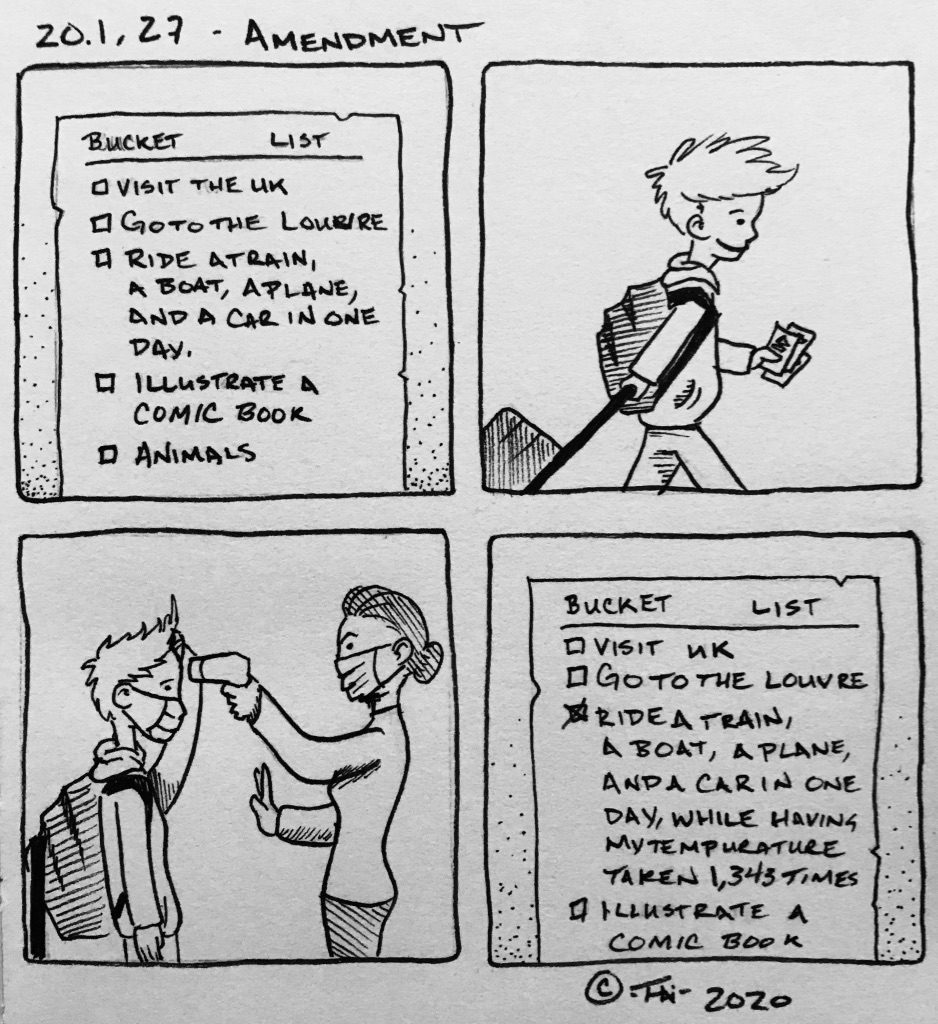 20.1.27 - AMENDMENT
BUCKET LIST
VISIT THE UK
GO TO THE LOUVRE
RIDE A TRAIN,
A BOAT, A PLANE,
AND A CAR IN ONE
DAY.
ILLUSTRATE A
COMIC BOOK
ANIMALS
BUCKET LIST
VISIT UK
GO TO THE LOUVRE
RIDE A TRAIN,
A BOAT, A PLANE,
AND A CAR IN ONE
DAY, WHILE HAVING
MY TEMPURATURE
TAKEN 1,343 TIMES
ILLUSTRATE A
COMIC BOOK
© 2020